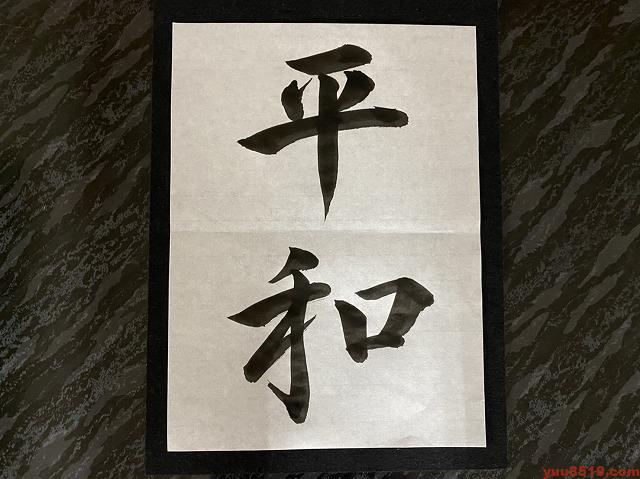 平和
yuu8519.com